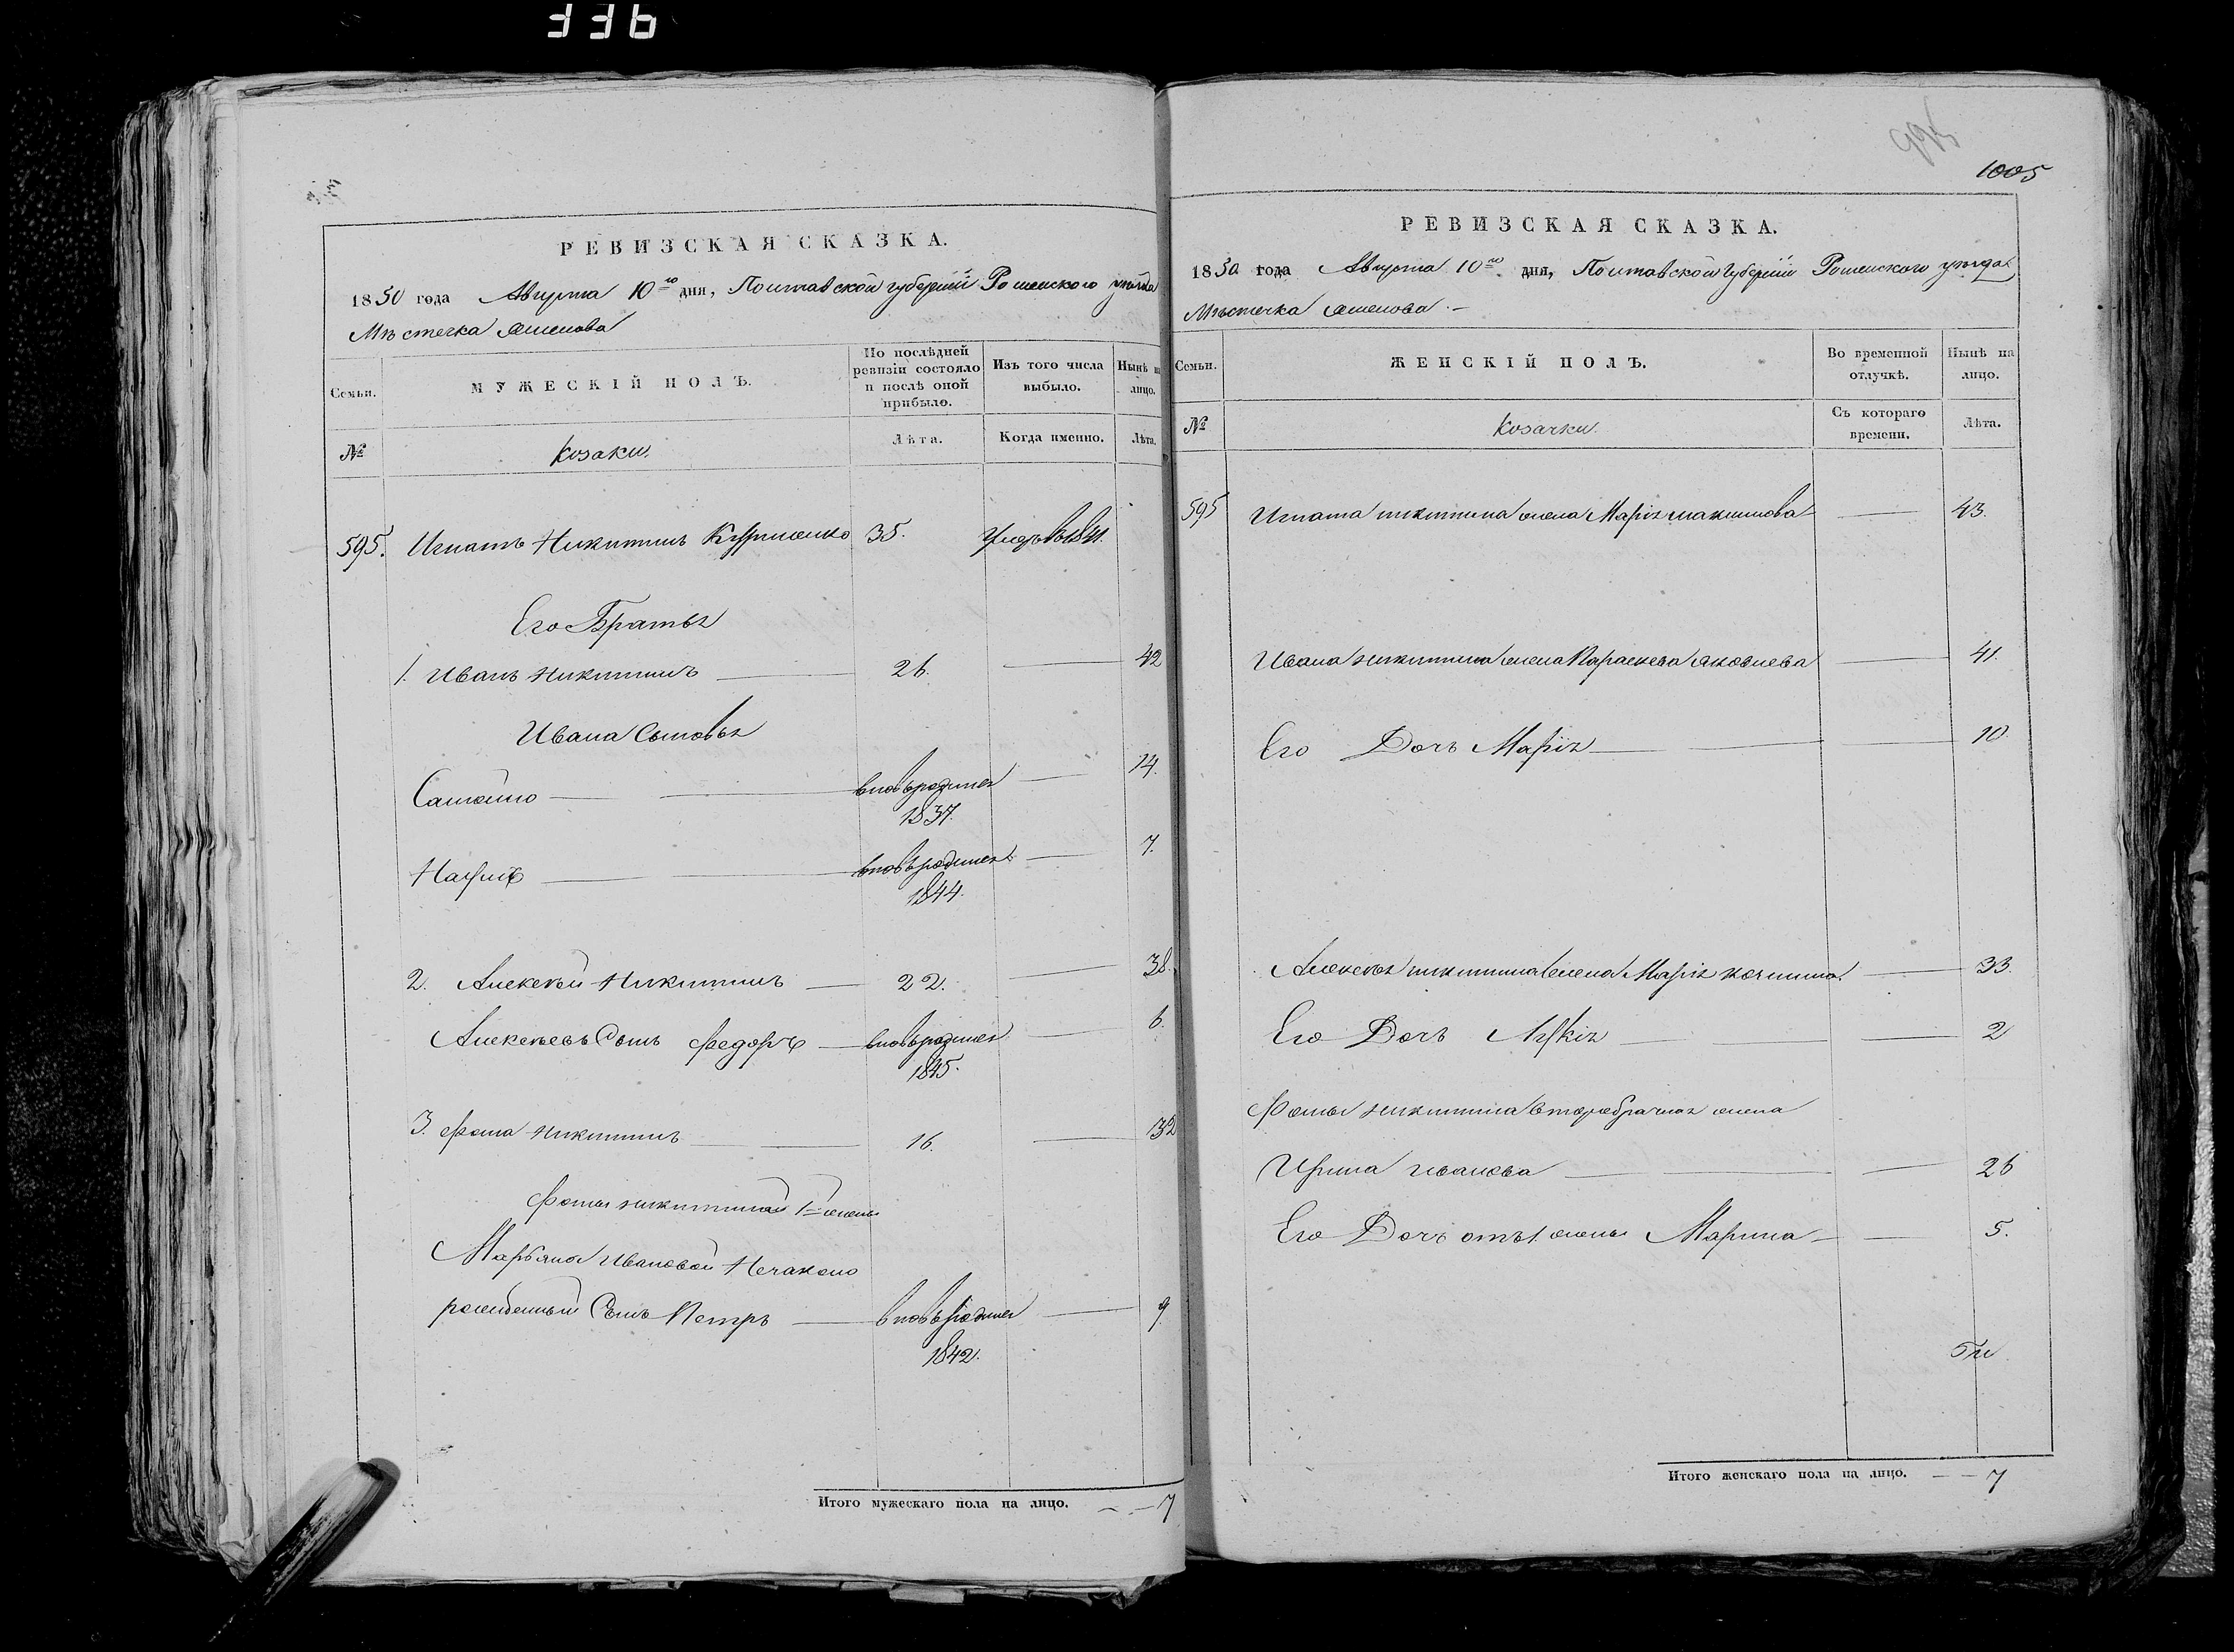 336
РЕВИЗСКАЯ СКАЗКА.
1850 года Августа 10го дня, Полтавской губернии Роменского уезда
Местечка Смелова
Семьи.
МУЖЕСКІЙ ПОЛЪ.
По послѣдней ревизіи состояло и послѣ оной прибыло.
Изъ того числа выбыло.
Нынѣ на лицо.
№
Козаки.
Лѣта.
Когда именно.
Лѣта.
595. Игнатъ Никитинъ 35. 1841.
Его Братья
1. Иванъ Никитинъ 26. 42
Ивана Сыновья
Самойло вновьрожденъ 14.
1837.
Наумъ вновьрожденъ 7.
1844.
2. Алексѣй Никитинъ 22. 38.
Алексѣевъ Сынъ Федоръ вновьрожденъ 6.
1845.
3. Фома Никитинъ 16. 32
Фомы Никитина 1й жены
Марьяны Ивановой
рожденный Сынъ Петръ вновьрожденъ 9
1842.
Итого мужескаго пола на лицо. 7
995
1005
РЕВИЗСКАЯ СКАЗКА.
1850 года Августа 10го дня, Полтавской губернии Роменского уезда
Местечка Смелова
Семьи.
ЖЕНСКІЙ ПОЛЪ.
Во временной отлучкѣ.
Нынѣ на лицо.
№
Козачки.
Съ котораго времени.
Лѣта.
595 Игната Никитина жена Марія Максимова 43.
Ивана Никитина жена Параскева Яковлева 41.
Его Дочь Марія 10.
Алексѣя Никитина жена Марія 33.
Его Дочь 2
Фомы Никитина второбрачная жена
Ирина Иванова 26
Его Дочь отъ 1. жены Марина 5.
Итого женскаго пола на лицо. 7